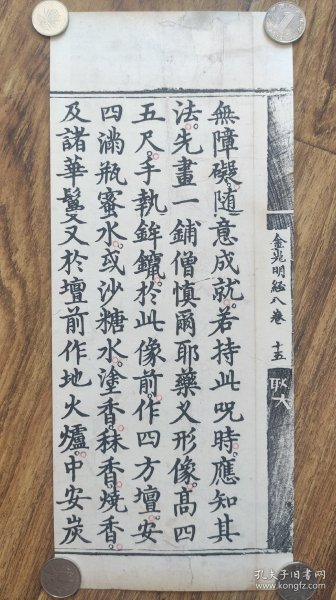 無障礙隨意成就若持此呪時應知其
法先畫一鋪僧慎爾耶藥叉形像高四
五尺手執鉾鑹於此像前作四方壇安
四滿瓶蜜水或沙糖水塗香秣香燒香
及諸華鬘又於壇前作地火爐中安炭
金光明經八卷 十五
孔夫子旧书网
www.kongfz.com